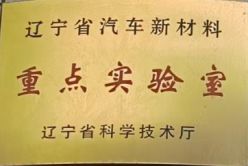 辽宁省汽车新材料
重点实验室
辽宁省科学技术厅